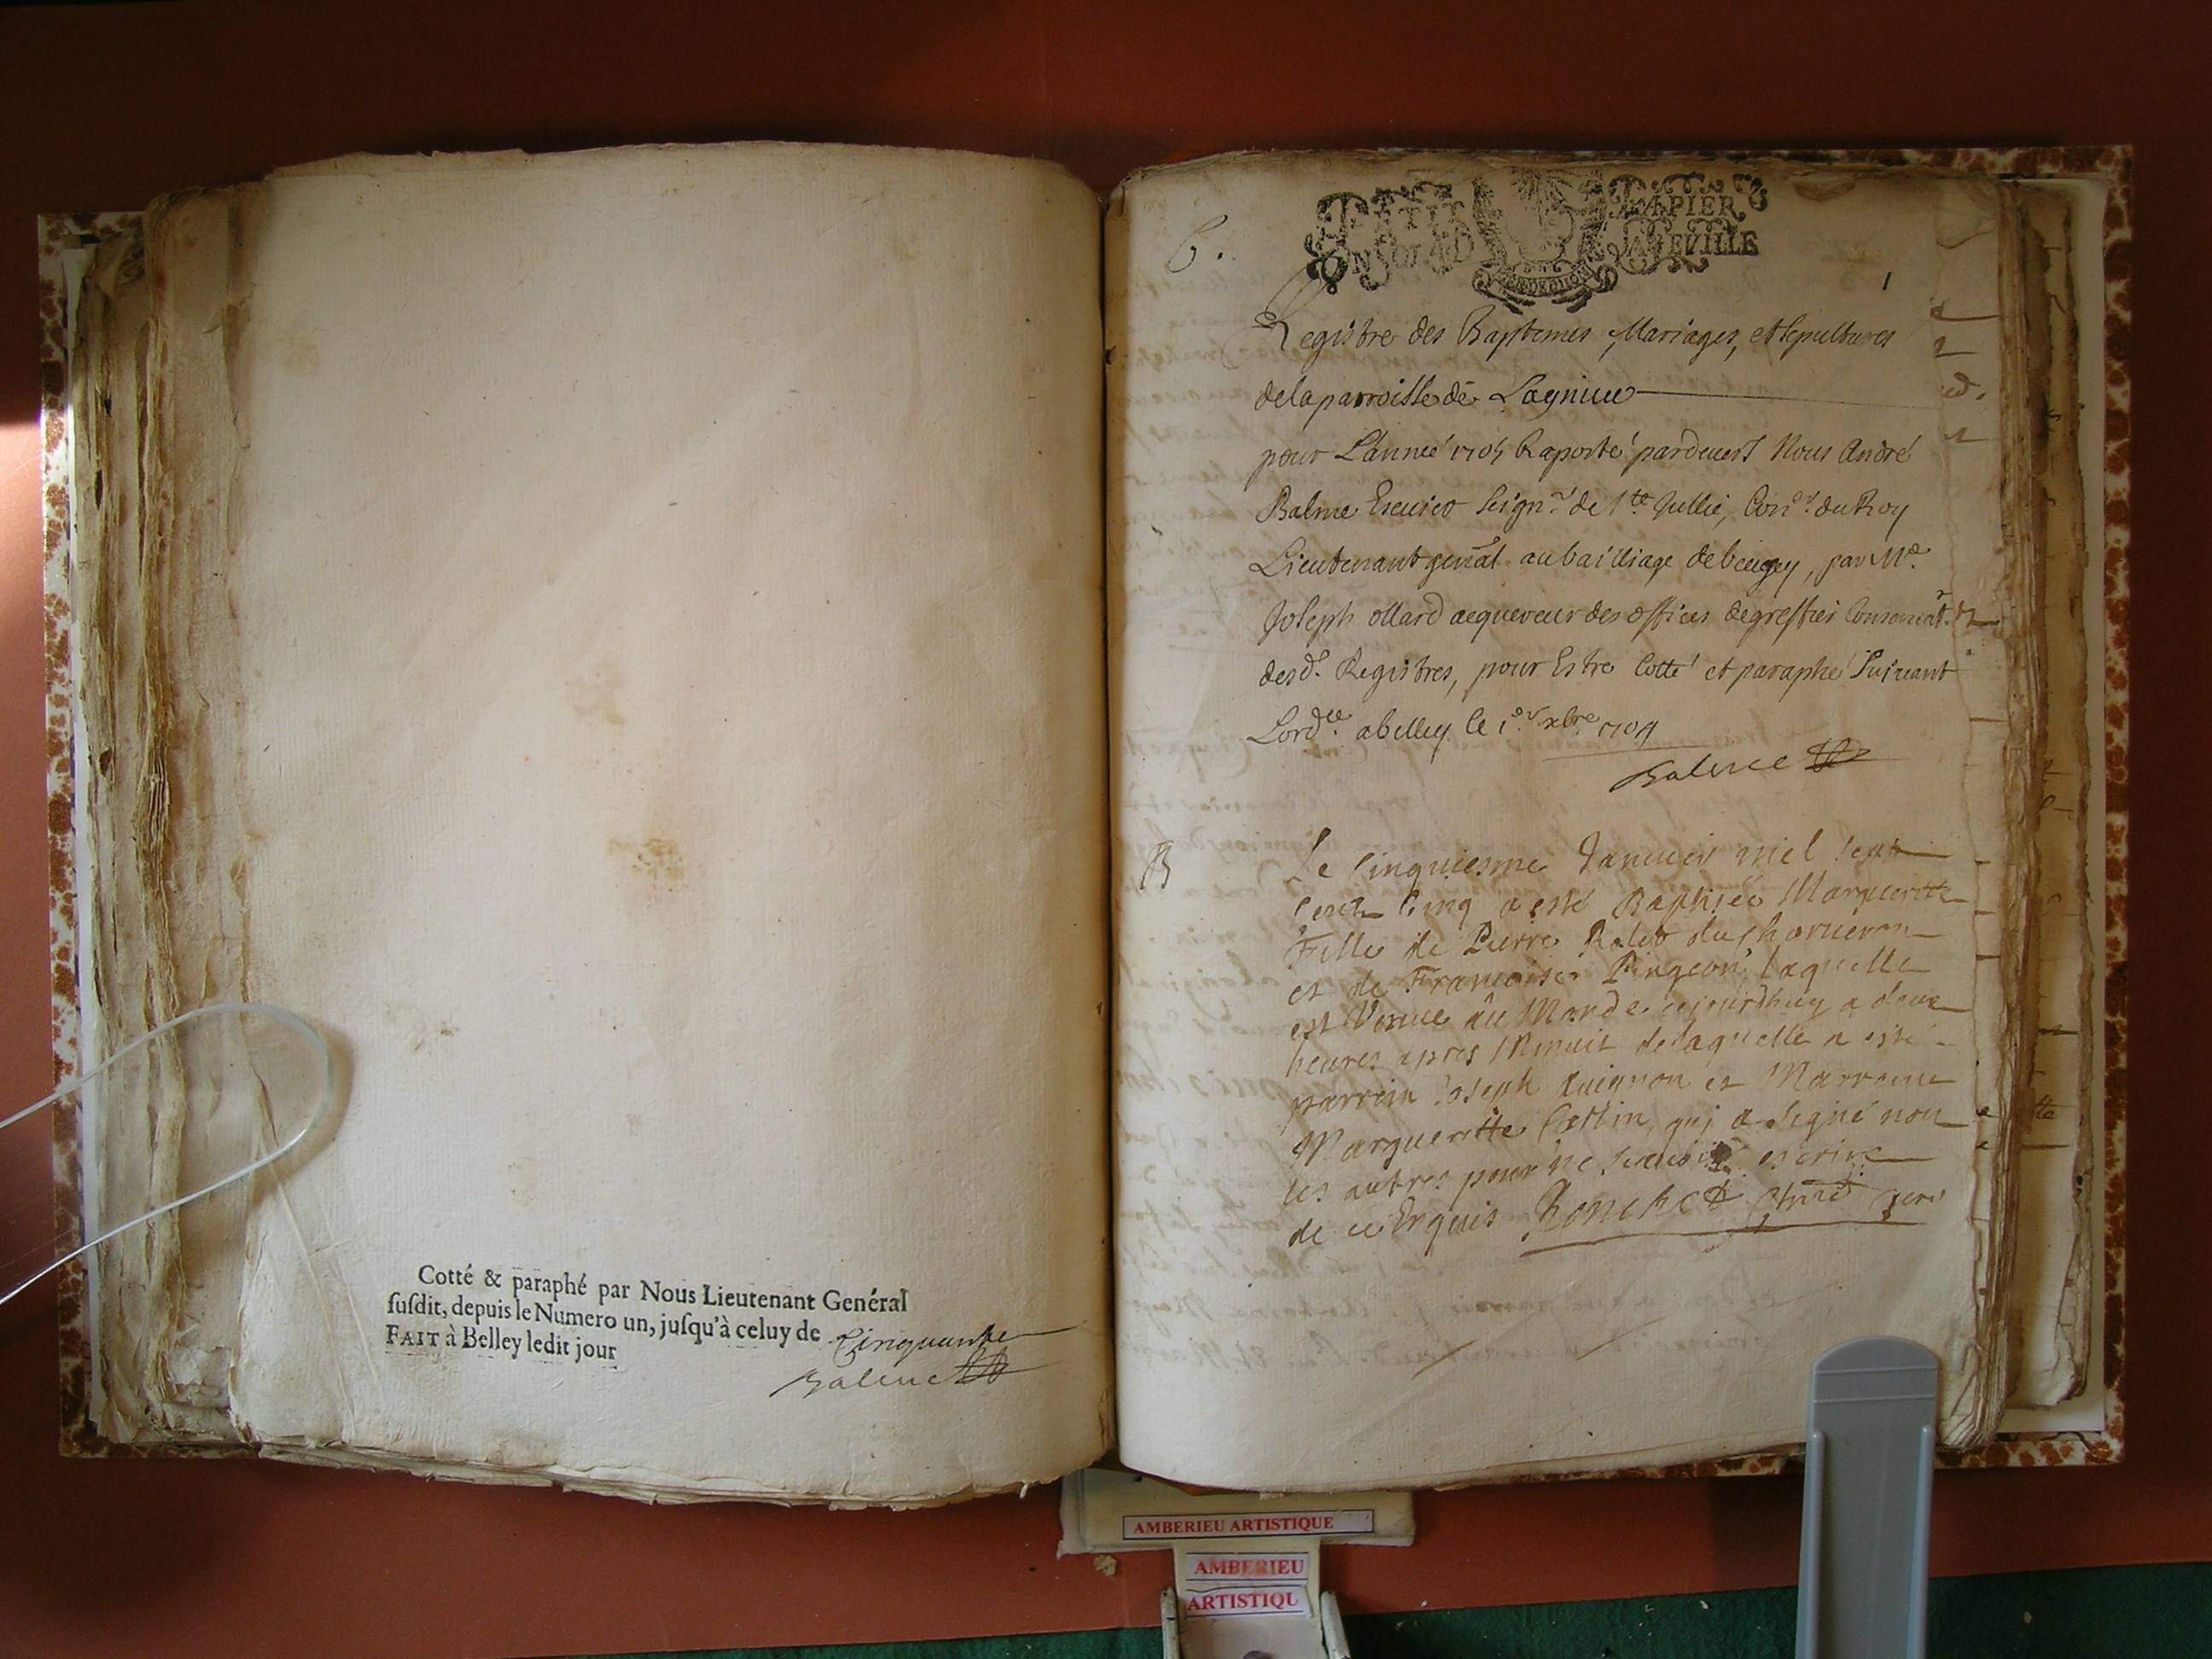 Cotté & paraphé par Nous Lieutenant Genéral
susdit, depuis le Numero un, jusqu'à celuy de Cinquante
FAIT à Belley ledit jour
Balme
6.
PETIT PAPIER
1
Registre des Baptemes, Mariages, et sepultures
de la parroisse de Lagnieu
pour L'année 1705 Raporté pardevers Nous André
Balme Escuier Seignr. de Ste. Jullie, Conser. du Roy
Lieutenant genãl au bailliage de beugey, par Me.
Joseph ollard acquereur des offices de greffier Conservat.
desd. Registres, pour Estre Cotté et paraphé Suivant
Lordce. a belley le 1er xbre 1704
Balme
B
Le Cinquiesme Januier mil sept
cent Cinq a esté Baptisée Marguerite
Fille de Pierre du Charueron
et de Francoise Pingeon laquelle
est Venue au Monde cejourdhuy a deux
heures apres Minuit de laquelle a esté
parrein Joseph et Marreine
Margueritte qui a signé non
les autres pour ne scauoir escrire
de ce Enquis Ronchet
AMBERIEU ARTISTIQUE
AMBERIEU
ARTISTIQU